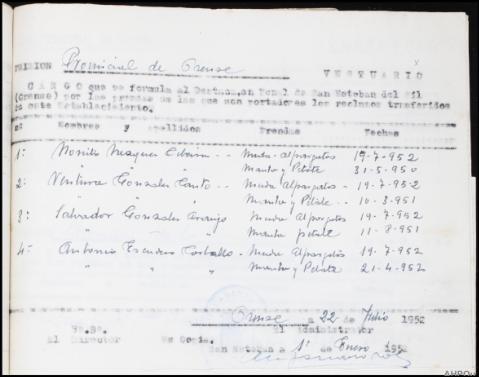 PRISION Provincial de Orense VESTUARIO
CARGO que se formula al Destacam,en Penal de San Esteban del Sil
(Orense) por las prendas de las que son portadores los reclusos transferidos
de este Establecimiento.
Nombres y apellidos Prendas Fechas
1: Vazquez .. Muda Alpargatas 19-7-952
Manta y Petate 31-5-950
2: Ventura Gonzalez .. Muda Alpargatas - 19-7-952
Manta y Petate .. 10-3-951
3: Salvador Gonzalez Araujo Muda Alpargatas 19-7-952
" " Manta petate 11-8-951
4: Antonio Carballo - Muda Alpargatas 19-7-952
" " " Manta y Petate 21-4-952
Orense a 22 de Julio 1952
Vº.Bº. El Administrador
El Director Es Copia.
San Esteban a 1º de Enero 195